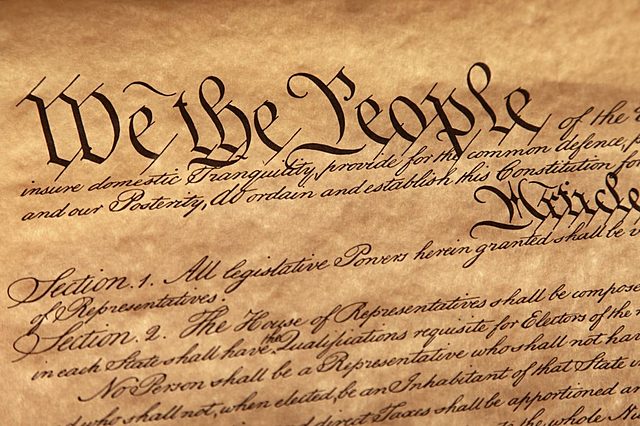 We the People of the
insure domestic Tranquility, provide for the common defence,
and our Posterity, do ordain and establish this Constitution for
Article
Section. 1. All legislative Powers herein granted shall be
of Representatives.
Section. 2. The House of Representatives shall be compose
in each State shall have the Qualifications requisite for Electors of the
No Person shall be a Representative who shall not ha
who shall not, when elected, be an Inhabitant of that State
direct Taxes shall be apportioned a
to the whole Nu